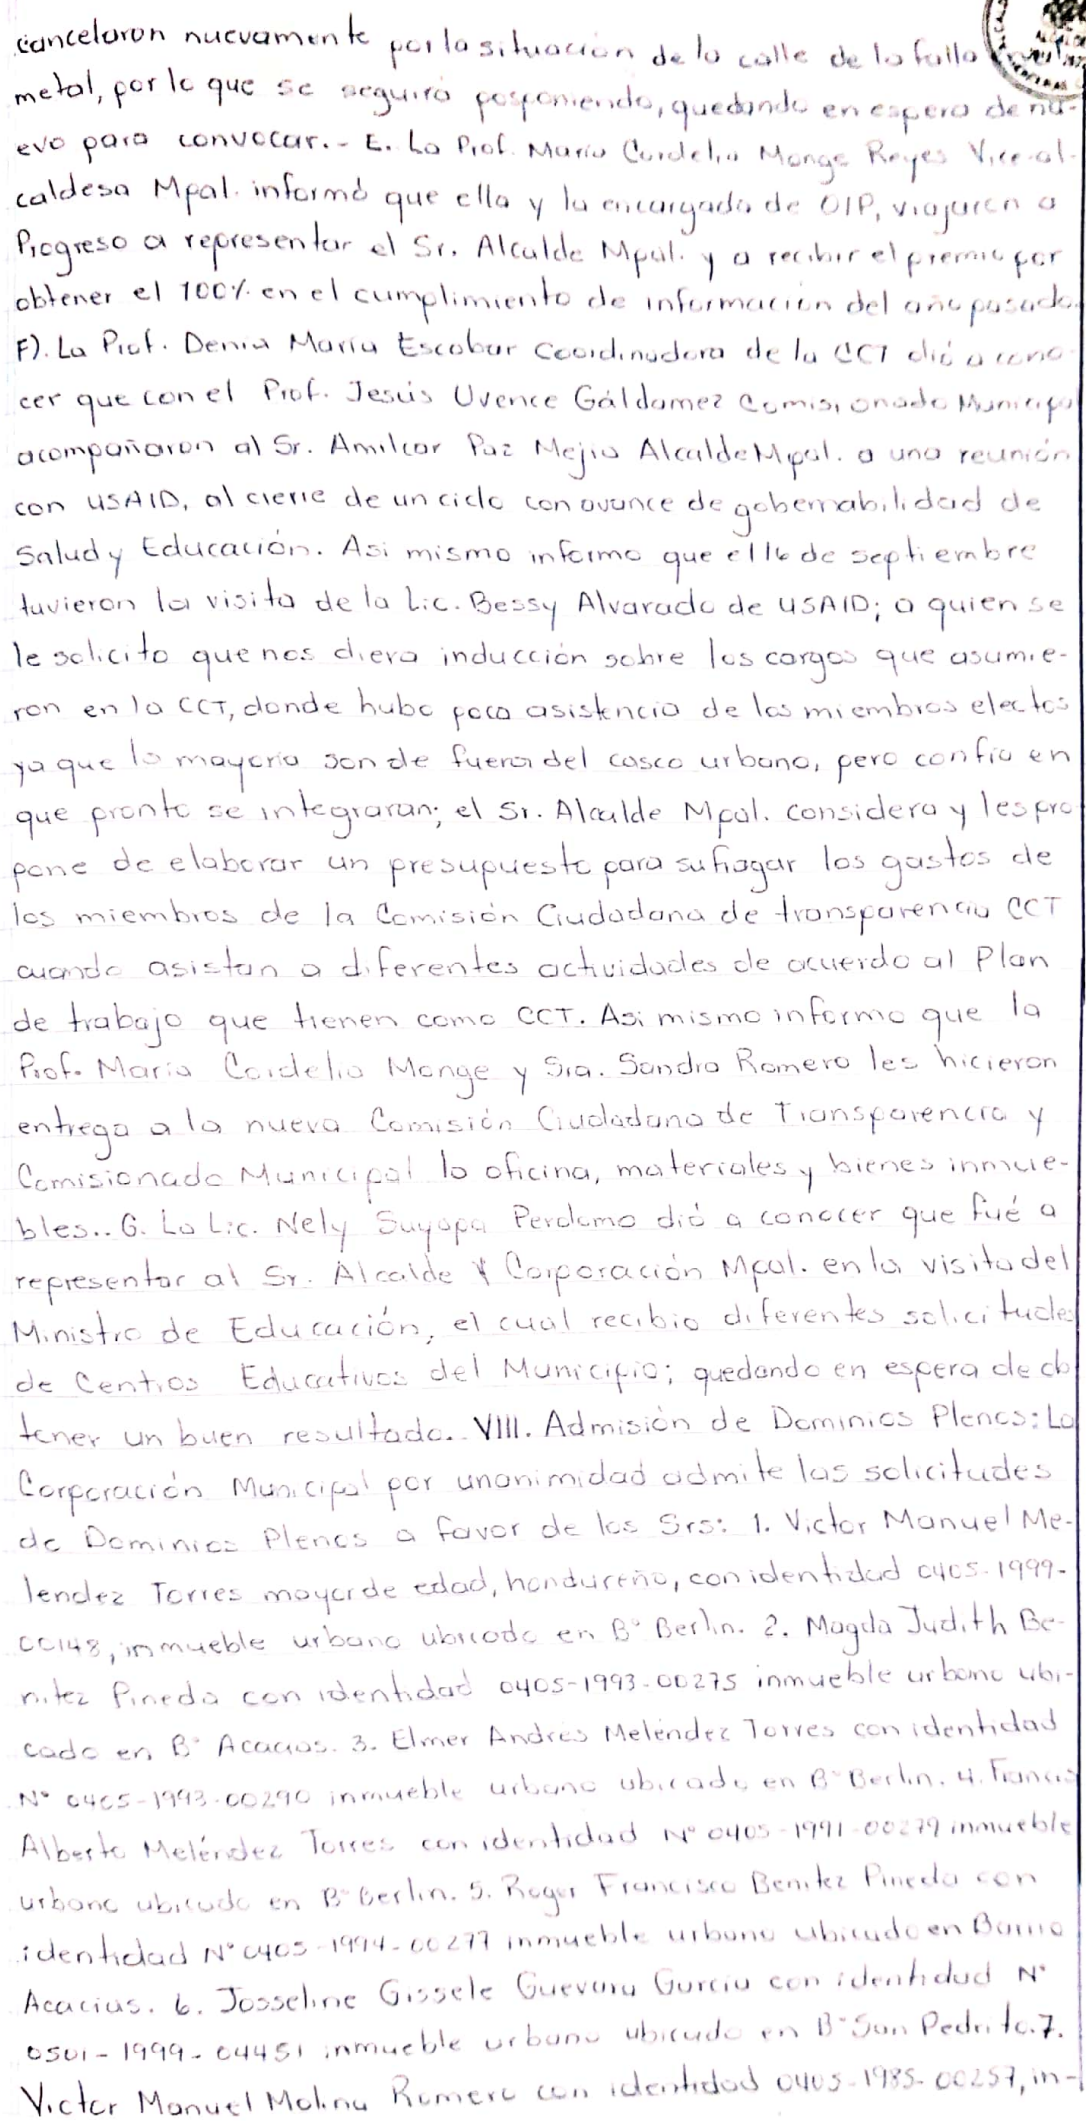 cancelaron nuevamente por la situación de la calle de la falla
metal, por lo que se seguirá posponiendo, quedando en espera de nu-
evo para convocar.- E. La Prof. María Cordelia Monge Reyes Vice-al-
caldesa Mpal. informó que ella y la encargada de OIP, viajaren a
Progreso a representar el Sr. Alcalde Mpal. y a recibir el premio por
obtener el 100% en el cumplimiento de información del año pasado.
F). La Prof. Denia María Escobar Coordinadora de la CCT dió a cono-
cer que con el Prof. Jesús Uvence Gáldamez Comisionado Municipal
acompañaron al Sr. Amilcar Paz Mejia Alcalde Mpal. a una reunión
con USAID, al cierre de un ciclo con avance de gobernabilidad de
Salud y Educación. Asi mismo informo que el 16 de septiembre
tuvieron la visita de la Lic. Bessy Alvarado de USAID; a quien se
le solicito que nos diera inducción sobre los cargos que asumie-
ron en la CCT, donde hubo poca asistencia de los miembros electos
ya que la mayoria son de fuera del casco urbano, pero confia en
que pronto se integraran; el Sr. Alcalde Mpal. considera y les pro
pone de elaborar un presupuesto para sufragar los gastos de
los miembros de la Comisión Ciudadana de transparencia CCT
cuando asistan a diferentes actividades de acuerdo al Plan
de trabajo que tienen como CCT. Asi mismo informo que la
Prof. Maria Cordelia Monge y Sra. Sandra Romero les hicieron
entrega a la nueva Comisión Ciudadana de Transparencia y
Comisionado Municipal la oficina, materiales y bienes inmue-
bles.. G. La Lic. Nely Suyapa Perdomo dió a conocer que fué a
representar al Sr. Alcalde y Corporación Mpal. en la visita del
Ministro de Educación, el cual recibio diferentes solicitudes
de Centros Educativos del Municipio; quedando en espera de ob
tener un buen resultado. VIII. Admisión de Dominios Plenos: La
Corporación Municipal por unanimidad admite las solicitudes
de Dominios Plenos a favor de los Srs: 1. Victor Manuel Me-
lendez Torres mayor de edad, hondureño, con identidad 0405-1999-
00148, inmueble urbano ubicado en B° Berlin. 2. Magda Judith Be-
nitez Pineda con identidad 0405-1993-00275 inmueble urbano ubi-
cado en B° Acacias. 3. Elmer Andrés Meléndez Torres con identidad
N° 0405-1993-00290 inmueble urbano ubicado en B° Berlin. 4. Francis
Alberto Meléndez Torres con identidad N° 0405-1991-00279 inmueble
urbano ubicado en B° Berlin. 5. Roger Francisco Benitez Pineda con
identidad N° 0405-1994-00277 inmueble urbano ubicado en Barrio
Acacias. 6. Josseline Gissele Guevara Garcia con identidad N°
0501-1999-04451 inmueble urbano ubicado en B° San Pedrito. 7.
Victor Manuel Molina Romero con identidad 0405-1985-00257, in-